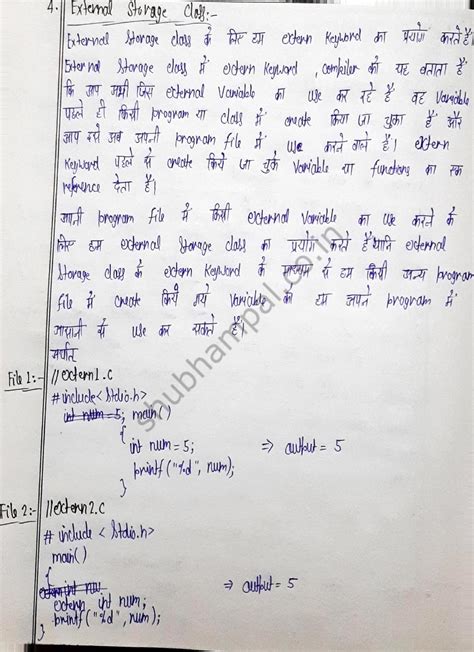 4. External Storage Class:-
External Storage class के लिए हम extern keyword का प्रयोग करते हैं।
External Storage class में extern keyword, compiler को यह बताता है
कि आप अभी जिस external variable का use कर रहे हैं वह variable
पहले ही किसी program या class में create किया जा चुका है और
आप उसे अब अपनी program file में use करने वाले हैं। extern
keyword पहले से create किये जा चुके variable या functions का एक
reference देता है।
यानी program file में किसी external variable का use करने के
लिए हम external storage class का प्रयोग करते हैं यानि external
storage class के extern keyword के माध्यम से हम किसी अन्य program
file में create किये गये variable को हम अपने program में
आसानी से use कर सकते हैं।
अर्थात्
File 1:- //extern1.c
#include<stdio.h>
int num=5; main()
{
int num=5; ⇒ output = 5
printf("%d", num);
}
File 2:- //extern2.c
# include <stdio.h>
main()
{
extern int num
extern int num; ⇒ output = 5
printf("%d", num);
}
shubhampal.co.in